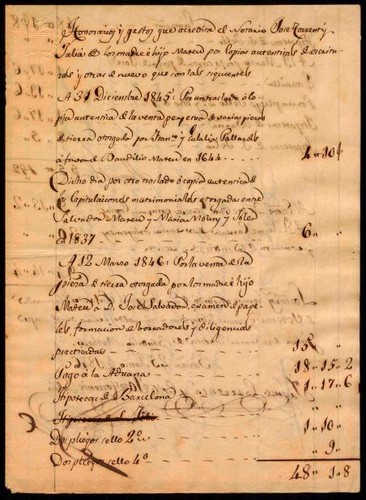 Honorarios y gastos que acredita el Notario José Torrent y
Julia de los madre e hijo Mateu por copias autenticas de escritu-
ras y otras de nuevo que son las siguientes
A 31 Diciembre 1845: Por un traslado ó co-
pia autentica de la venta perpetua de varias piezas
de tierra otorgada por Fran.co y Eulalia
á favor de Baudilio Mateu en 1644 . . . . 4 " 10 "
Dicho dia por otro traslado ó copia autentica de
los capitulaciones matrimoniales otorgadas entre
Salvador Mateu y Maria Moliny y
en 1837 . . . . 6 " "
A 12 Marzo 1846: Por la venta de una
pieza de tierra otorgada por los madre é hijo
Mateu á D. José Salvador, examen de pape-
les formacion de borradores y diligencias
practicadas . . . . 15 "
Pago á la Aduana . . . . 18 " 15 " 2
Hipotecas de Barcelona . . . . 1 " 17 " 6
Dos pliegos sello 2º . . . . 1 " 10 "
Dos pliegos sello 4º . . . . " 9 "
48 " 1 " 8